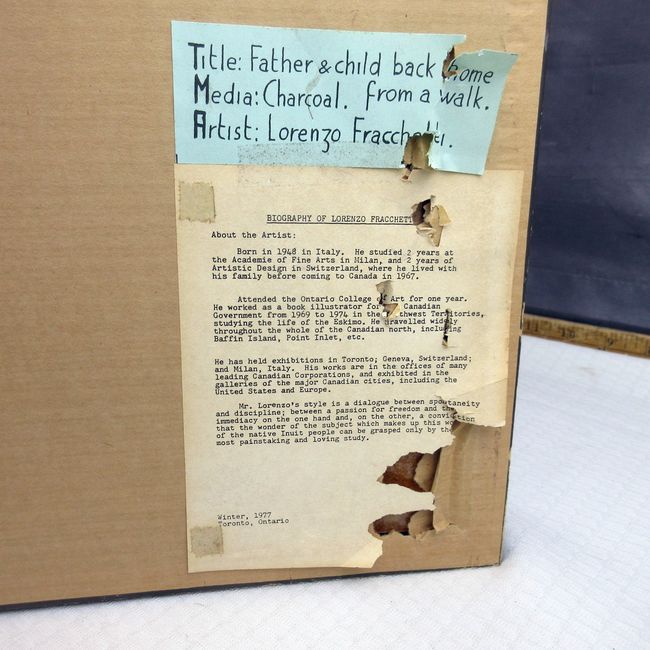 Title: Father & child back home
Media: Charcoal. from a walk.
Artist: Lorenzo Fracchetti.
BIOGRAPHY OF LORENZO FRACCHETT
About the Artist:
Born in 1948 in Italy. He studied 2 years at
the Academie of Fine Arts in Milan, and 2 years of
Artistic Design in Switzerland, where he lived with
his family before coming to Canada in 1967.
Attended the Ontario College of Art for one year.
He worked as a book illustrator for Canadian
Government from 1969 to 1974 in the Northwest Territories,
studying the life of the Eskimo. He travelled widely
throughout the whole of the Canadian north, including
Baffin Island, Point Inlet, etc.
He has held exhibitions in Toronto; Geneva, Switzerland;
and Milan, Italy. His works are in the offices of many
leading Canadian Corporations, and exhibited in the
galleries of the major Canadian cities, including the
United States and Europe.
Mr. Lorenzo's style is a dialogue between spontaneity
and discipline; between a passion for freedom and the
immediacy on the one hand and, on the other, a conviction
that the wonder of the subject which makes up this wo
of the native Inuit people can be grasped only by the
most painstaking and loving study.
Winter, 1977
Toronto, Ontario